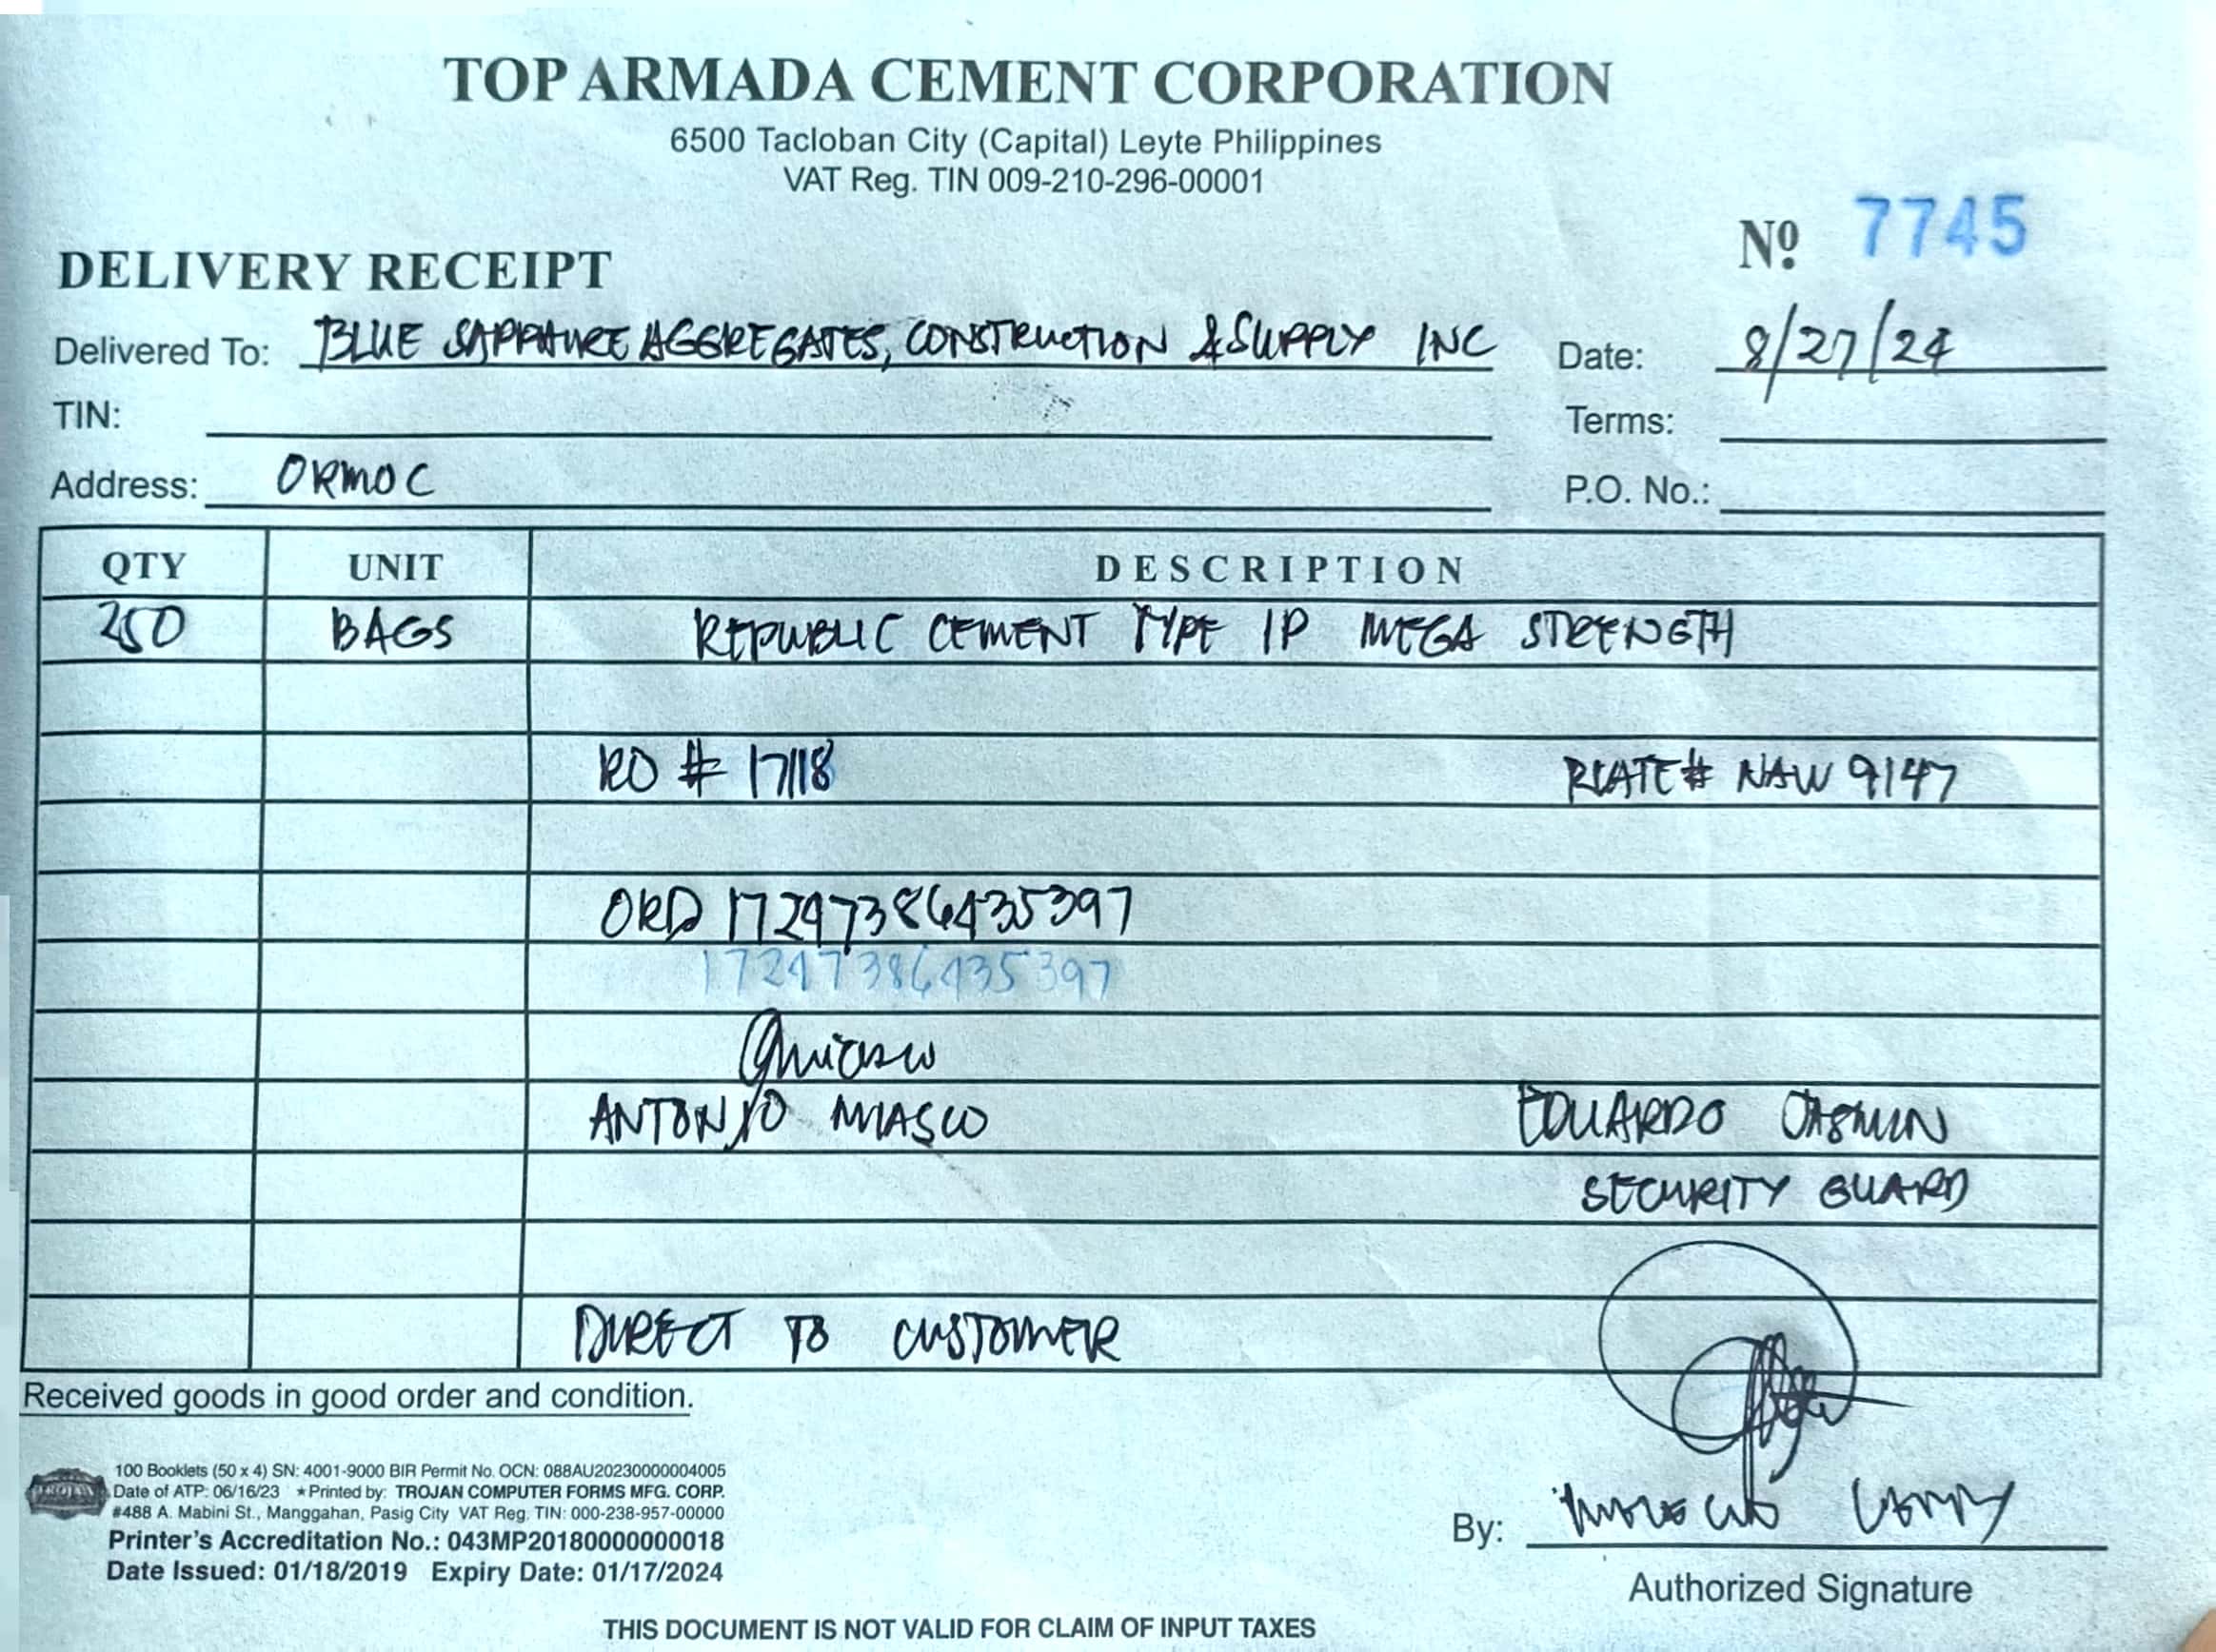 TOP ARMADA CEMENT CORPORATION
6500 Tacloban City (Capital) Leyte Philippines
VAT Reg. TIN 009-210-296-00001
Nº 7745
DELIVERY RECEIPT
Delivered To: BLUE SAPPHIRE AGGREGATES, CONSTRUCTION & SUPPLY INC Date: 8/27/24
TIN: Terms:
Address: ORMOC P.O. No.:
QTY UNIT DESCRIPTION
250 BAGS REPUBLIC CEMENT TYPE 1P MEGA STRENGTH
RO # 17118 PLATE# NAW 9147
ORD 17247386435397
17247386435397
ANTONIO MIASCO EDUARDO JASMIN
SECURITY GUARD
DIRECT TO CUSTOMER
Received goods in good order and condition.
100 Booklets (50 x 4) SN: 4001-9000 BIR Permit No. OCN: 088AU20230000004005
Date of ATP: 06/16/23 ★Printed by: TROJAN COMPUTER FORMS MFG. CORP.
#488 A. Mabini St., Manggahan, Pasig City VAT Reg. TIN: 000-238-957-00000
TROJAN
Printer's Accreditation No.: 043MP20180000000018
Date Issued: 01/18/2019 Expiry Date: 01/17/2024
By:
Authorized Signature
THIS DOCUMENT IS NOT VALID FOR CLAIM OF INPUT TAXES